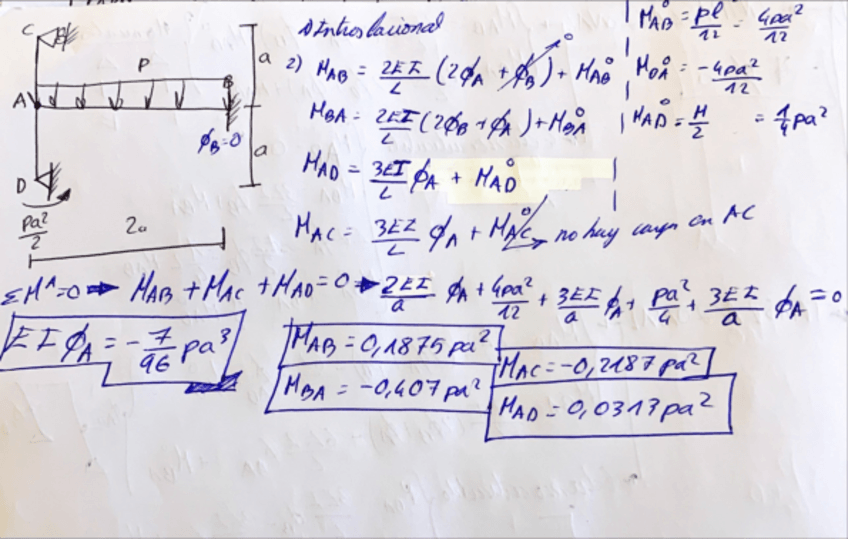 C
P
a
A
B
ϕB=0
a
D
pa²/2
2a
1) Intraslacional
2) MAB = 2EI/L (2ϕA + ϕB) + MAB° 0
MBA = 2EI/L (2ϕB + ϕA) + MBA°
MAD = 3EI/L ϕA + MAD°
MAC = 3EI/L ϕA + MAC° → no hay carga en AC
MAB° = pl/12 = 4pa²/12
MBA° = -4pa²/12
MAD° = M/2 = 1/4 pa²
ΣMA=0 ⇒ MAB + MAC + MAD = 0 → 2EI/a ϕA + 4pa²/12 + 3EI/a ϕA + pa²/4 + 3EI/a ϕA = 0
EIϕA = -7/96 pa³
MAB = 0,1875 pa²
MBA = -0,407 pa²
MAC = -0,2187 pa²
MAD = 0,0313 pa²